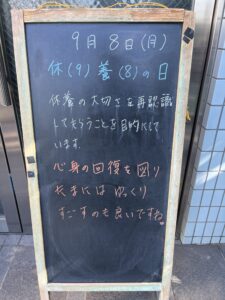 9月8日(月)
休(9)養(8)の日
休養の大切さを再認識
してもらうことを目的にして
います。
心身の回復を図り
たまにはゆっくり
すごすのも良いですね